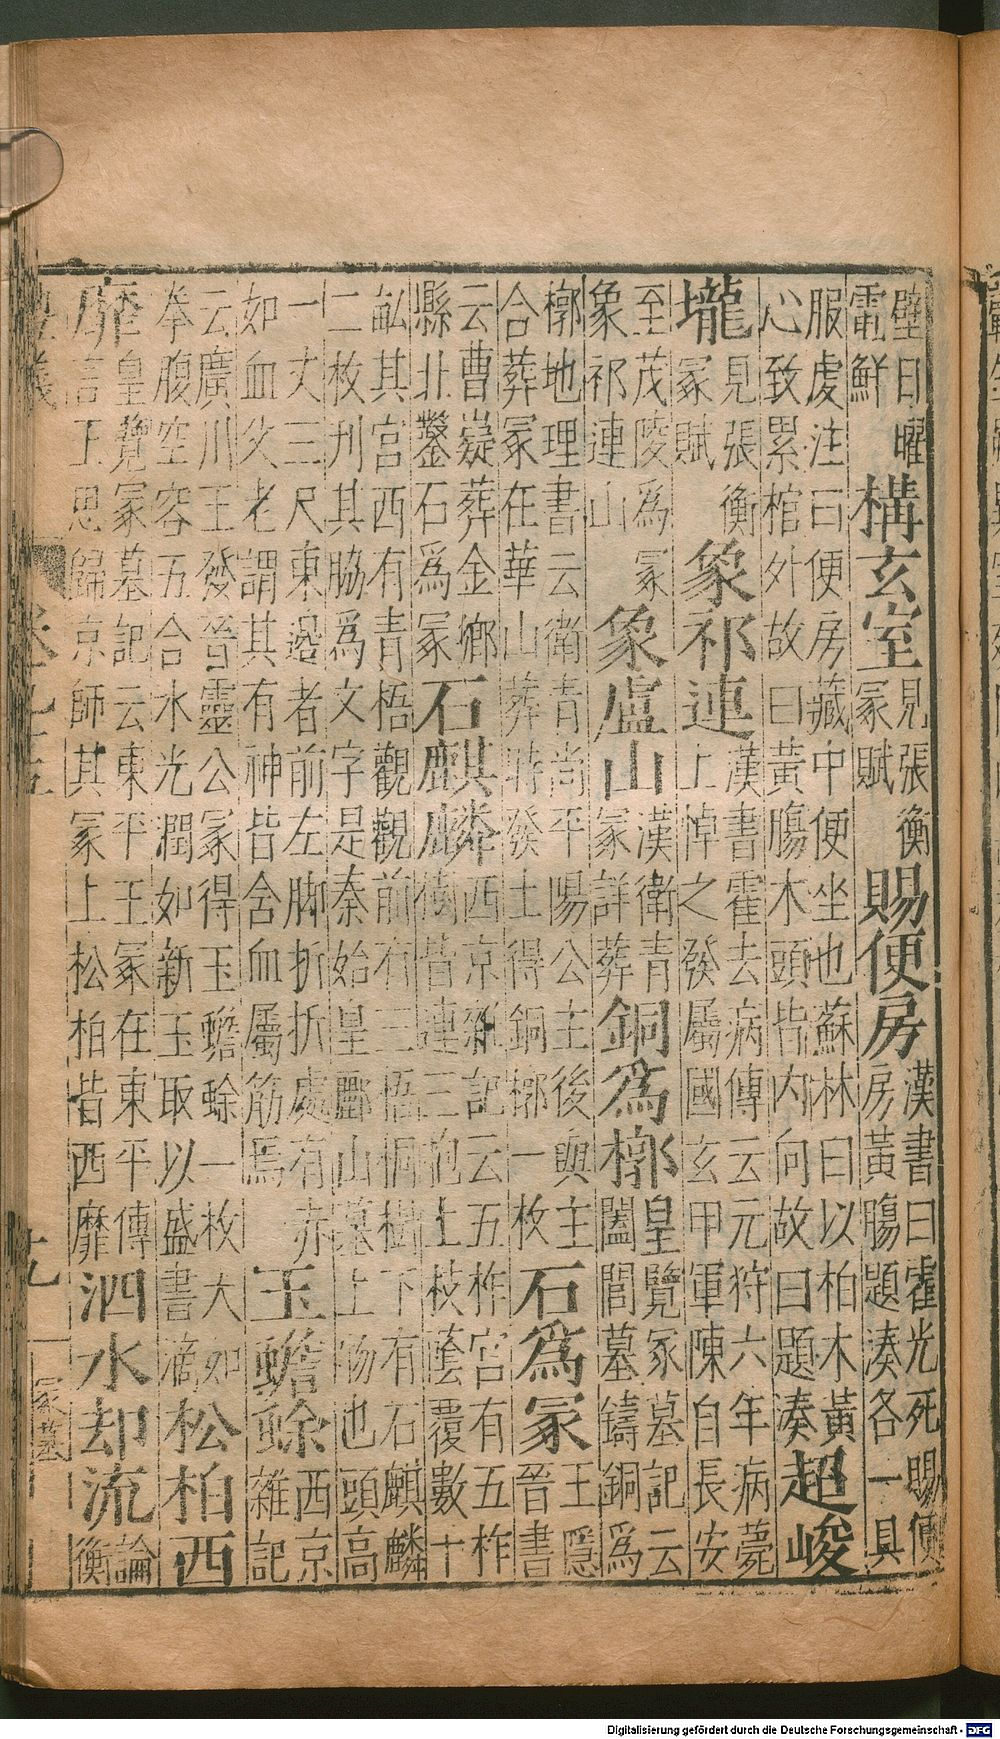 璧日曜
電鮮
構玄室
見張衡
冢賦
賜便房
漢書曰霍光死賜便
房黃腸題湊各一具
服虔注曰便房藏中便坐也蘇林曰以柏木黃
心致累棺外故曰黃腸木頭皆內向故曰題湊
超峻
壠
見張衡
冢賦
象祁連
漢書霍去病傳云元狩六年病薨
上悼之發屬國玄甲軍陳自長安
至茂陵爲冢
象祁連山
象盧山
漢衛青
冢詳葬
銅爲槨
皇覽冢墓記云
闔閭墓鑄銅爲
槨地理書云衛青尚平陽公主後與主
合葬冢在華山葬時發土得銅槨一枚
石爲冢
王隱
晉書
云曹嶷葬金鄉
縣北鑿石爲冢
石麒麟
西京雜記云五柞宮有五柞
樹皆連三抱上枝蔭覆數十
畝其宮西有青梧觀觀前有三梧桐樹下有石麒麟
二枚刋其脇爲文字是秦始皇酈山墓上物也頭高
一丈三尺東邊者前左脚折折處有赤
如血父老謂其有神皆含血屬筋焉
玉蟾蜍
西京
雜記
云廣川王發晉靈公冢得玉蟾蜍一枚大如
拳腹空容五合水光潤如新玉取以盛書滴
松柏西
靡
皇覽冢墓記云東平王冢在東平傳
言王思歸京師其冢上松柏皆西靡
泗水却流
論
衡
十九
冢墓
Digitalisierung gefördert durch die Deutsche Forschungsgemeinschaft - DFG